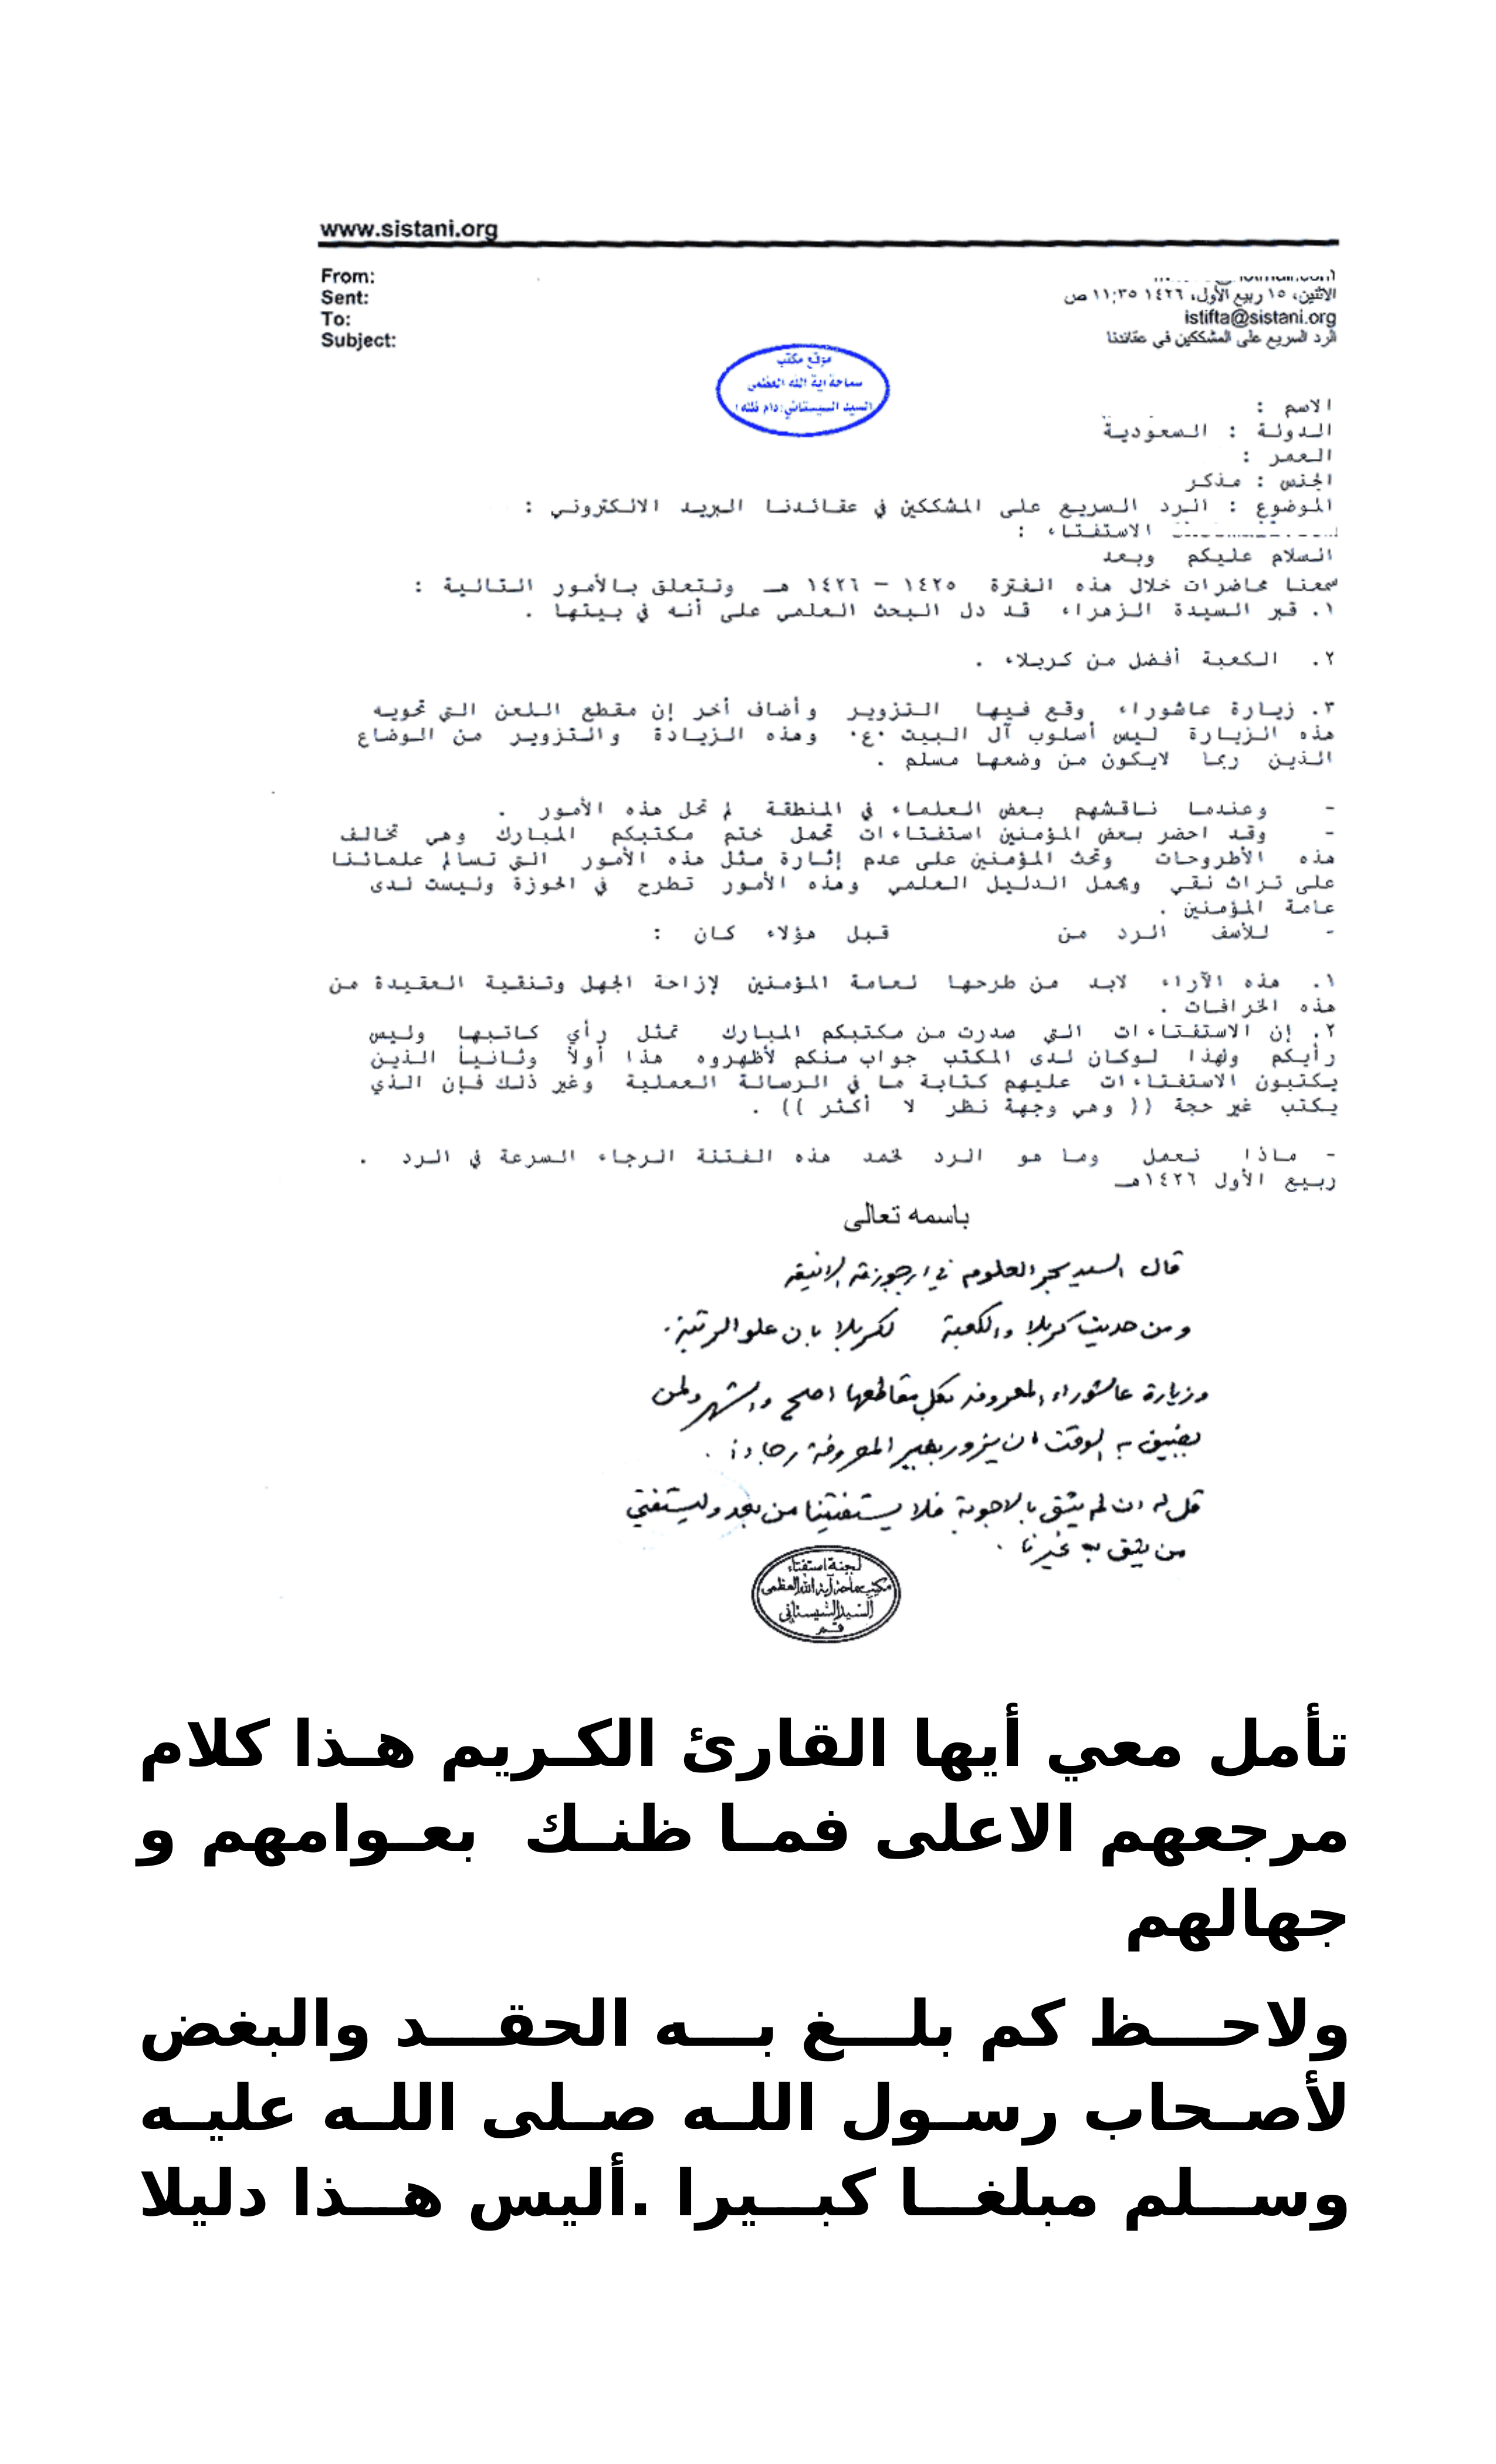 www.sistani.org
From:
Sent: الاثنين، ١٥ ربيع الأول، ١٤٢٦ ١١:٣٥ ص
To: istifta@sistani.org
Subject: الرد السريع على المشككين في عقائدنا
موقع مكتب
سماحة آية الله العظمى
السيد السيستاني (دام ظله)
الاسم :
الدولة : السعودية
العمر :
الجنس : مذكر
الموضوع : الرد السريع على المشككين في عقائدنا البريد الالكتروني :
الاستفتاء :
السلام عليكم وبعد
سمعنا محاضرات خلال هذه الفترة ١٤٢٥ – ١٤٢٦ هـ وتتعلق بالأمور التالية :
١. قبر السيدة الزهراء قد دل البحث العلمي على أنه في بيتها .
٢. الكعبة أفضل من كربلاء .
٣. زيارة عاشوراء وقع فيها التزوير وأضاف أخر إن مقطع اللعن التي تحويه
هذه الزيارة ليس أسلوب آل البيت ٠ع٠ وهذه الزيادة والتزوير من الوضاع
الذين ربما لايكون من وضعها مسلم .
- وعندما ناقشهم بعض العلماء في المنطقة لم تحل هذه الأمور .
- وقد احضر بعض المؤمنين استفتاءات تحمل ختم مكتبكم المبارك وهي تخالف
هذه الأطروحات وتحث المؤمنين على عدم إثارة مثل هذه الأمور التي تسالم علمائنا
على تراث نقي ويحمل الدليل العلمي وهذه الأمور تطرح في الحوزة وليست لدى
عامة المؤمنين .
- للأسف الرد من قبل هؤلاء كان :
١. هذه الآراء لابد من طرحها لعامة المؤمنين لإزاحة الجهل وتنقية العقيدة من
هذه الخرافات .
٢. إن الاستفتاءات التي صدرت من مكتبكم المبارك تمثل رأي كاتبها وليس
رأيكم ولهذا لوكان لدى المكتب جواب منكم لأظهروه هذا أولاً وثانياً الذين
يكتبون الاستفتاءات عليهم كتابة ما في الرسالة العملية وغير ذلك فإن الذي
يكتب غير حجة (( وهي وجهة نظر لا أكثر )) .
- ماذا نعمل وما هو الرد لخمد هذه الفتنة الرجاء السرعة في الرد .
ربيع الأول ١٤٢٦هـ
باسمه تعالى
قال السيد بحر العلوم في ارجوزته الانيقه
ومن حديث كربلا والكعبة لكربلا بان علو الرتبة .
وزيارة عاشوراء المعروفه بكل مقاطعها اصح واشهر ولمن
يضيق به الوقت ان يزور بغير المعروفة رجاءً .
قل له ان لم يثق بالاجوبة فلا يستفتينا من بعد وليستفتي
من يثق به غيرنا .
لجنة استفتاء
مكتب سماحة آية الله العظمى
السيد السيستاني
قم
تأمل معي أيها القارئ الكـريم هـذا كلام
مرجعهم الاعلى فمـا ظنـك بعـوامهم و
جهالهم
ولاحـــظ كم بلـــغ بـــه الحقـــد والبغض
لأصـحاب رسـول اللـه صـلى اللـه عليـه
وســـلم مبلغـــا كبـــيرا .أليس هـــذا دليلا